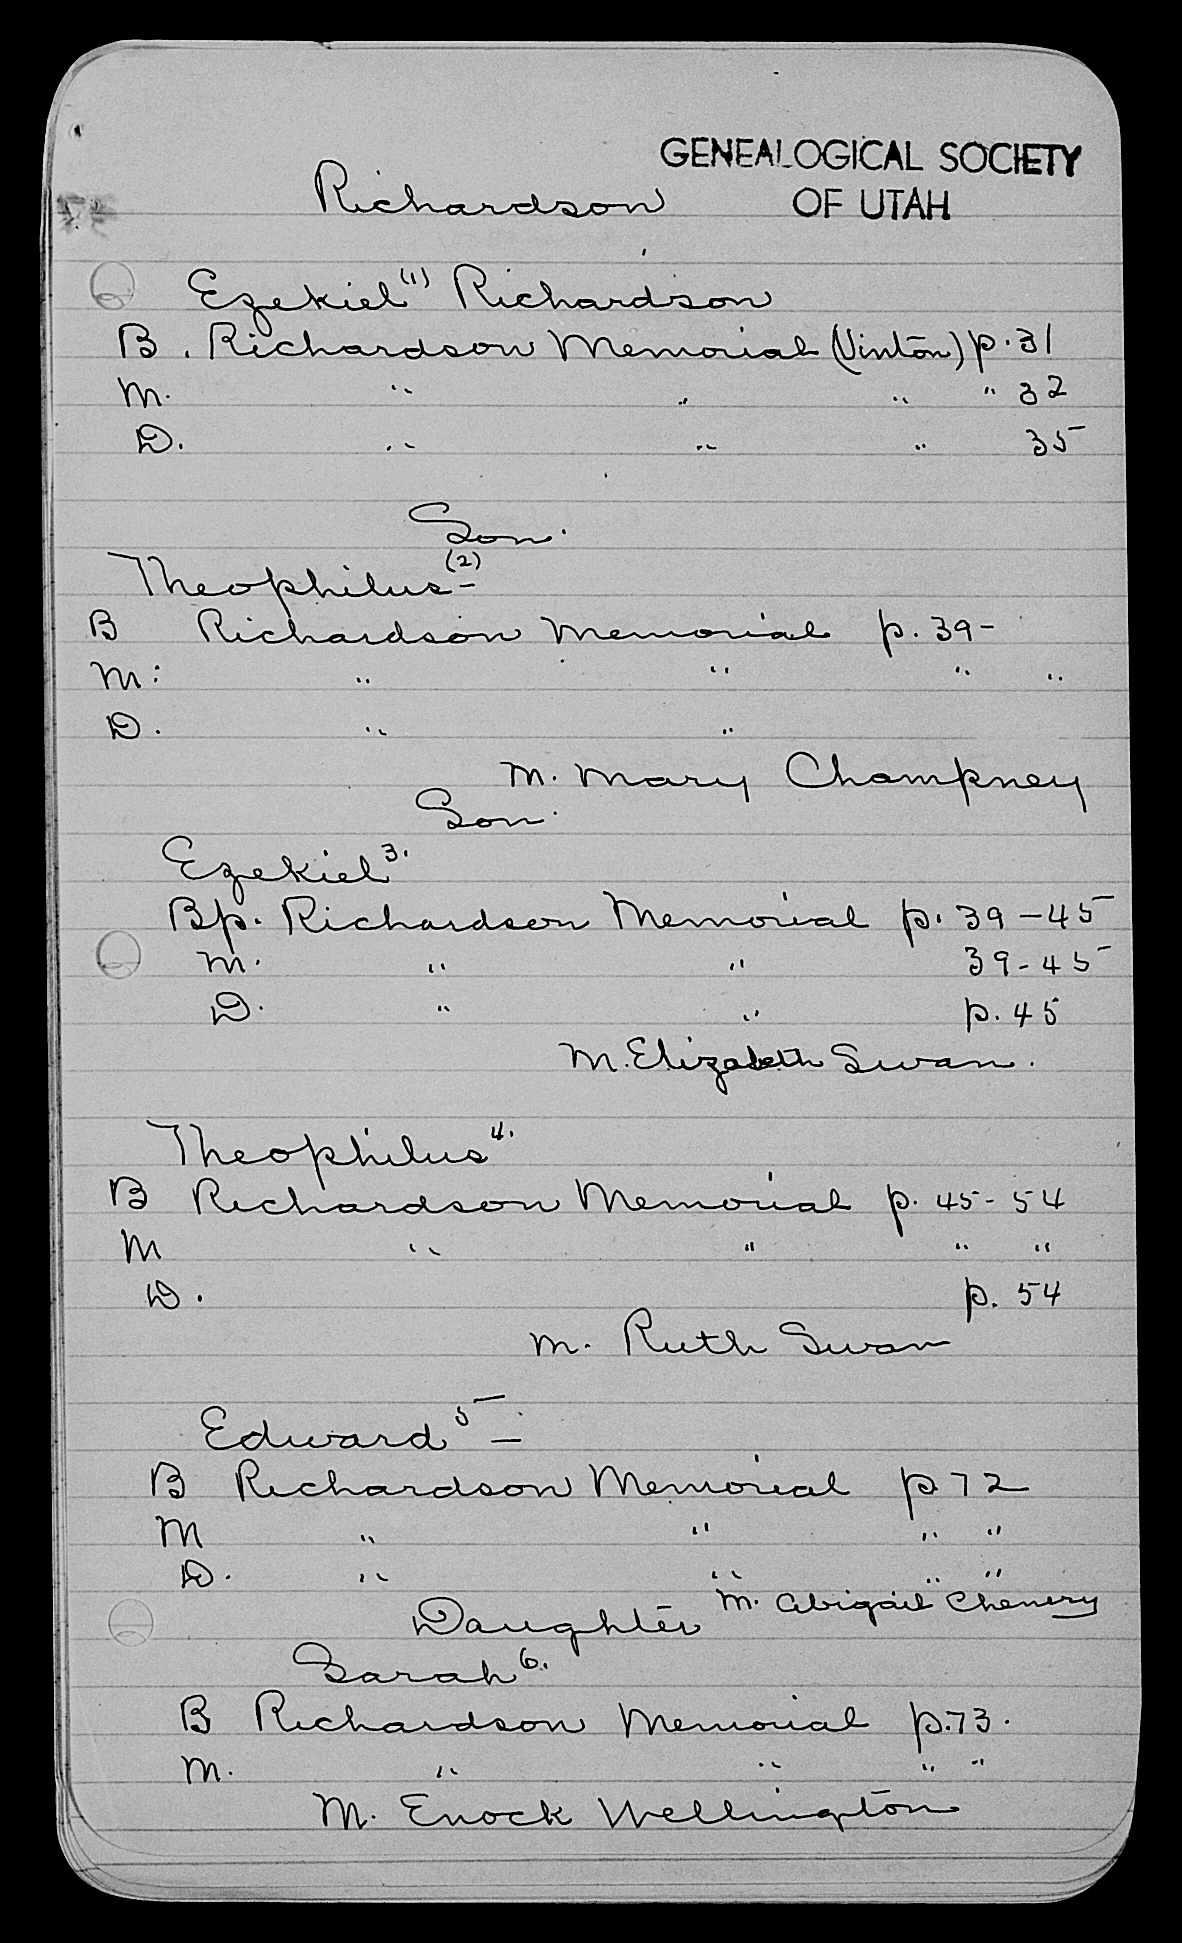 GENEALOGICAL SOCIETY
OF UTAH
Richardson
Ezekiel(1) Richardson
B. Richardson Memorial (Vinton) p. 31
M. " " " " 32
D. " " " 35
Son.
Theophilus(2)-
B Richardson Memorial p. 39-
M: " " " "
D. " "
M. Mary Champney
Son.
Ezekiel3.
Bp. Richardson Memorial p. 39-45
M. " " 39-45
D. " " p. 45
M. Elizabeth Swan.
Theophilus4.
B Richardson Memorial p. 45-54
M " " " "
D. p. 54
M. Ruth Swan
Edward5-
B Richardson Memorial p 72
M " " " "
D. " " " "
M. Abigail Chenery
Daughter
Sarah6.
B Richardson Memorial p. 73.
M. " " " "
M. Enock Wellington